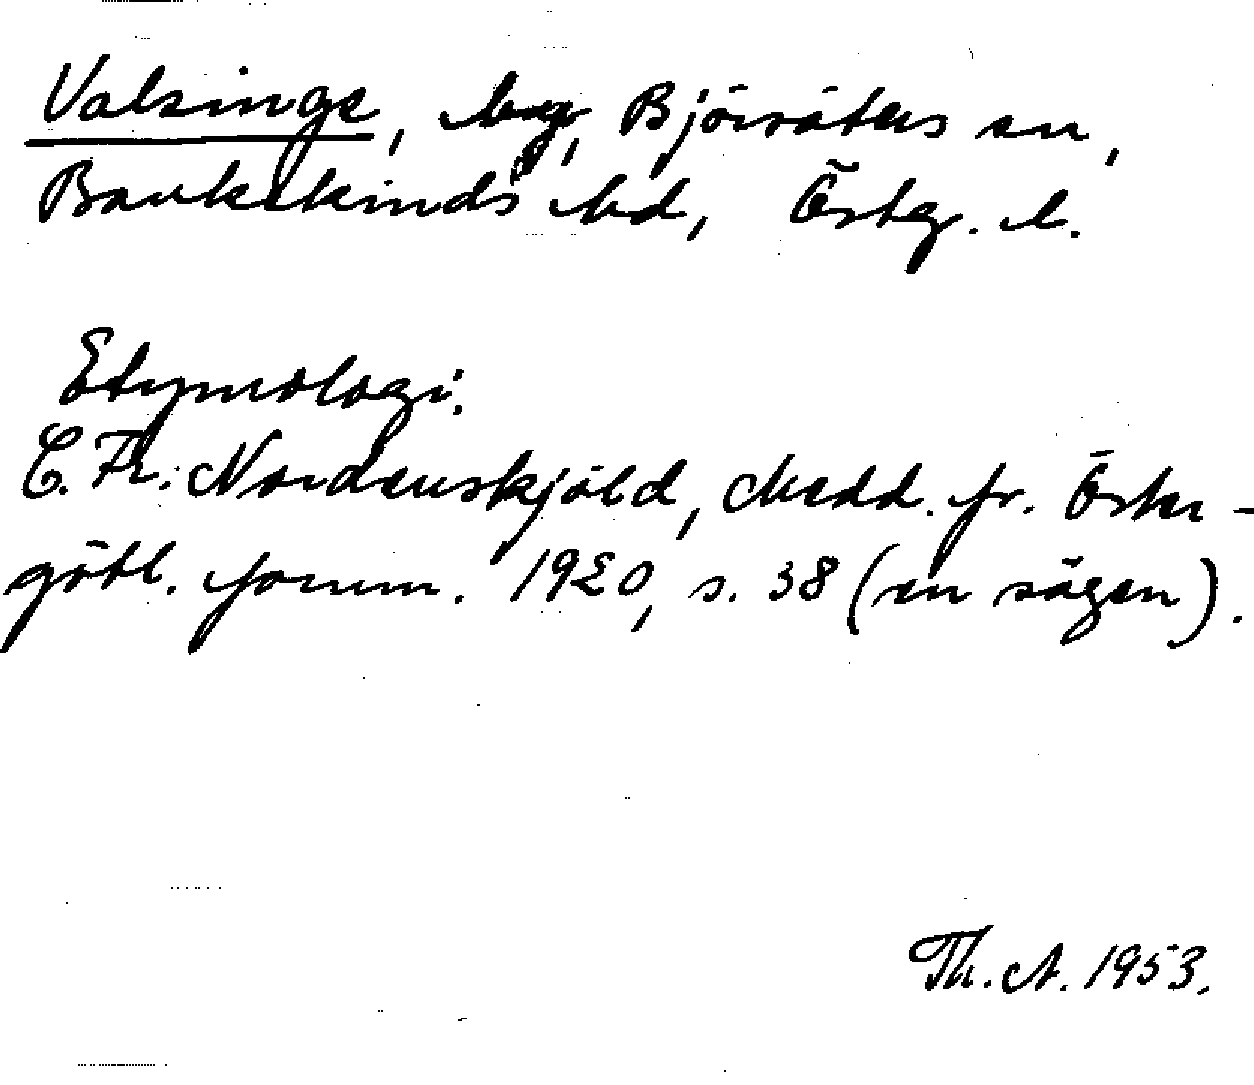 Valsinge, by, Björsäters sn,
Bankekinds hd, Östg. l.
Etymologi:
C. Fr. Nordenskjöld, Medd. fr. Öster-
götl. fornm. 1920, s. 38 (en sägen).
Th. A. 1953.